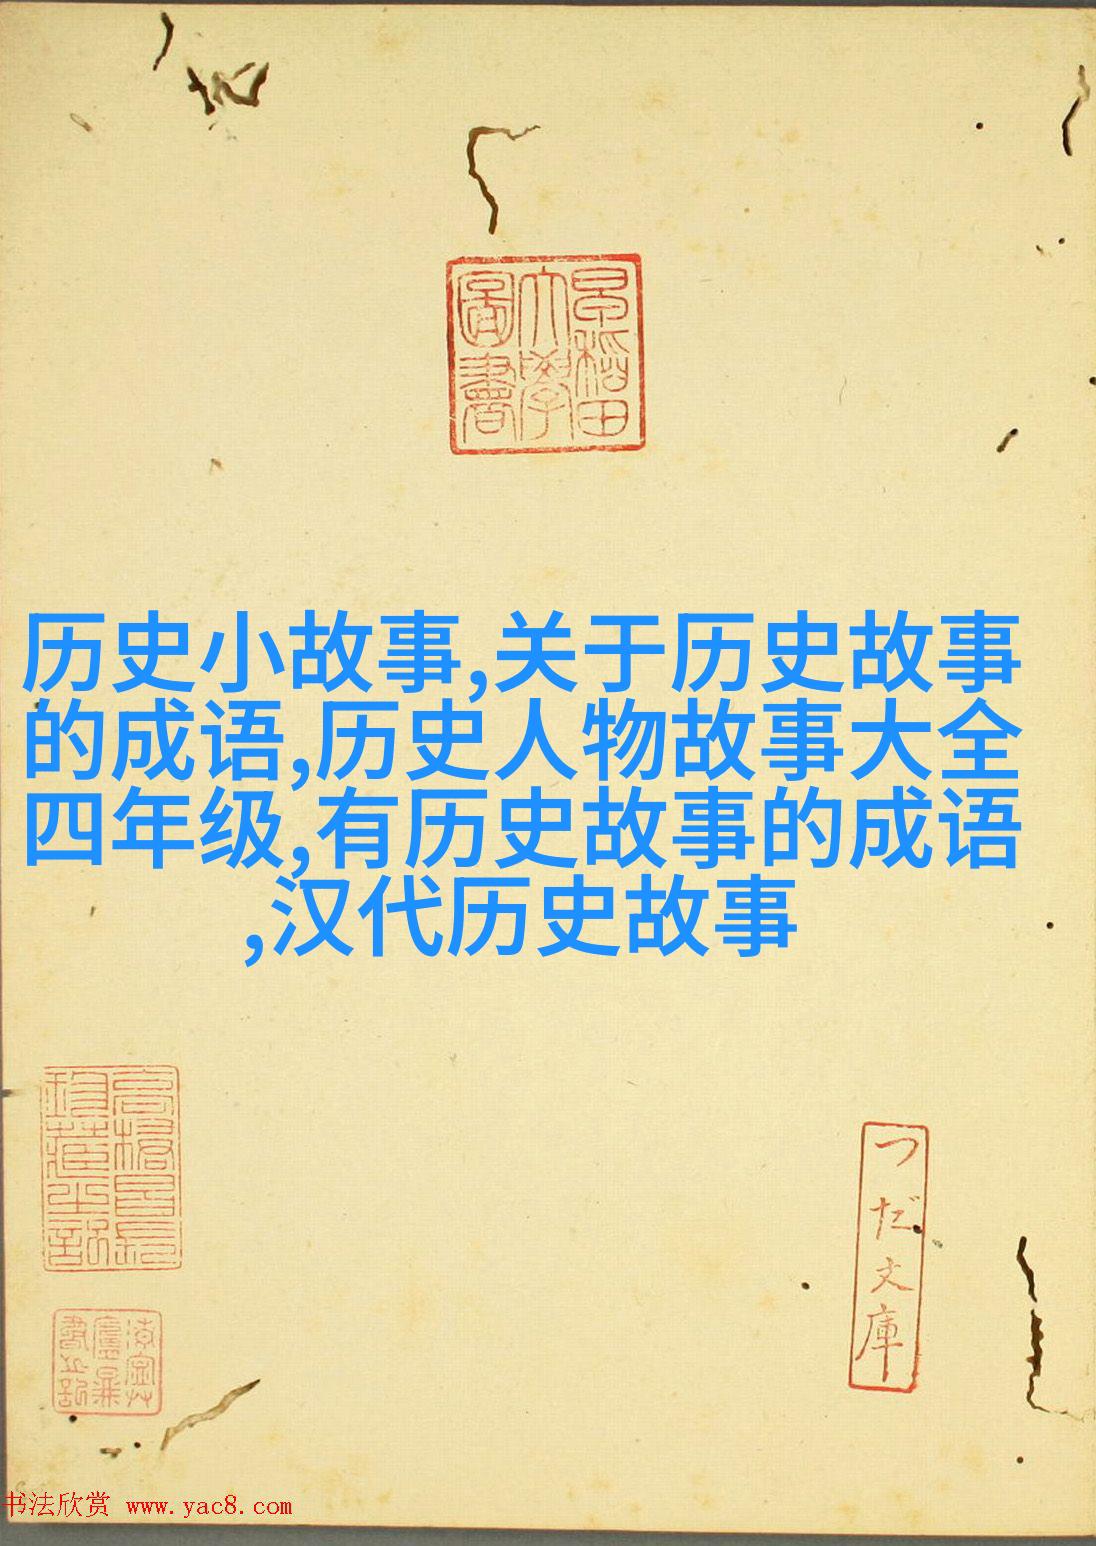 早稻田
大學
圖書
历史小故事,关于历史故事
的成语,历史人物故事大全
四年级,有历史故事的成语
,汉代历史故事
つだ文庫
书法欣赏 www.yac8.com